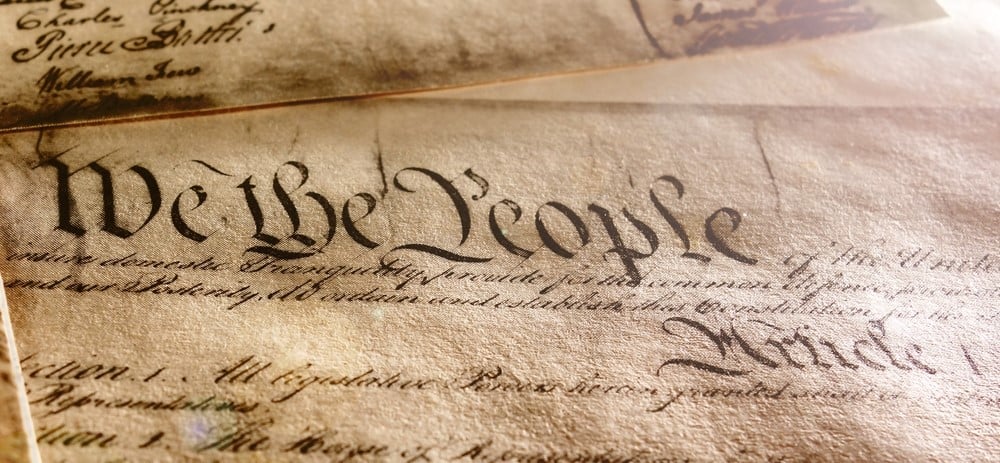 Charles Pinckney,
Pierce Butler.
William Few
We the People of the United
insure domestic Tranquility, provide for the common defence, promote
and our Posterity, do ordain and establish this Constitution for
Article 1
ction. 1. All legislative Powers herein granted shall
Representatives.
ction 2. The House of